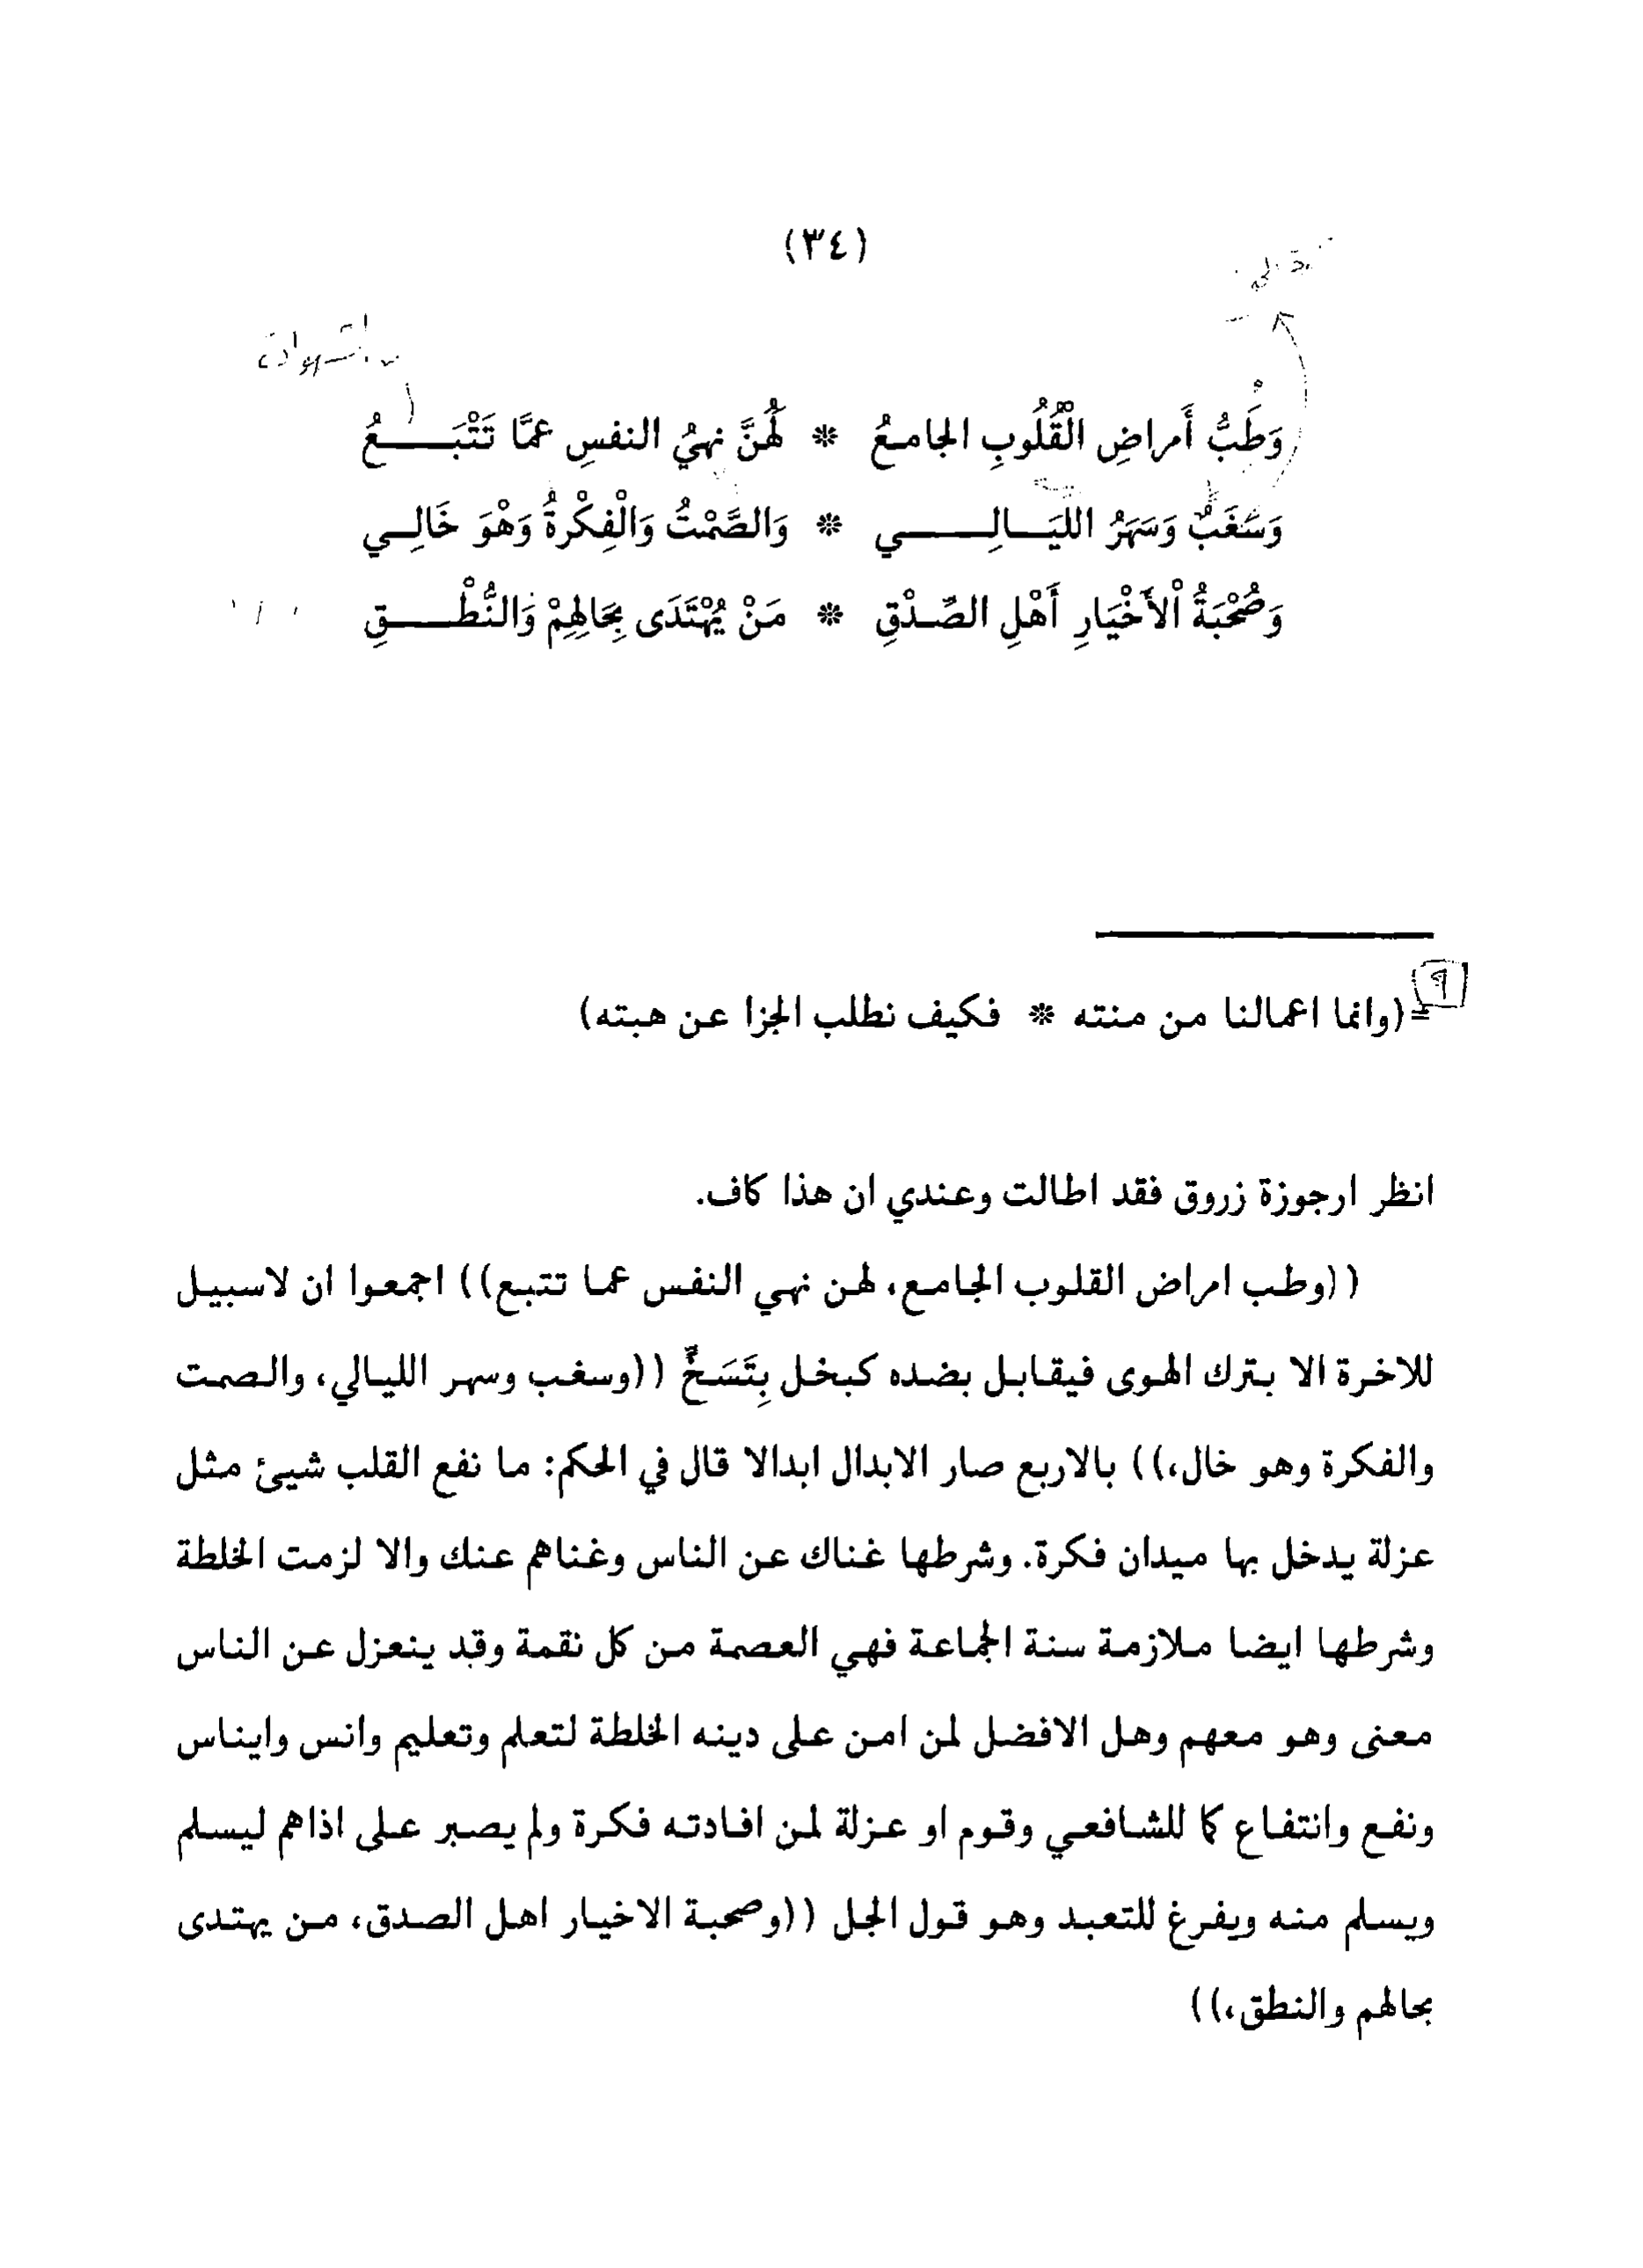 (٣٤)
وَطَبُّ أَمراضِ الْقُلُوبِ الجامعُ * لَهُنَّ نهيُ النفسِ عمَّا تَتْبَـــــعُ
وَسَغَبٌ وَسَهَرُ الليَـــالِـــــــي * وَالصَّمْتُ وَالْفِكْرةُ وَهْوَ خَالِـــي
وَصُحْبَةُ اْلأَخْيَارِ أَهْلِ الصِّــدْقِ * مَنْ يُهْتَدَى بِحَالِهِمْ وَالنُّطْـــــقِ
=(وانما اعمالنا من منته * فكيف نطلب الجزا عن هبته)
انظر ارجوزة زروق فقد اطالت وعندي ان هذا كاف.
((وطب امراض القلوب الجامع، لهن نهي النفس عما تتبع)) اجمعوا ان لاسبيل
للاخرة الا بترك الهوى فيقابل بضده كبخل بِتَسَخٍّ ((وسغب وسهر الليالي، والصمت
والفكرة وهو خال،)) بالاربع صار الابدال ابدالا قال في الحكم: ما نفع القلب شيئ مثل
عزلة يدخل بها ميدان فكرة. وشرطها غناك عن الناس وغناهم عنك والا لزمت الخلطة
وشرطها ايضا ملازمة سنة الجماعة فهي العصمة من كل نقمة وقد ينعزل عن الناس
معنى وهو معهم وهل الافضل لمن امن على دينه الخلطة لتعلم وتعليم وانس وايناس
ونفع وانتفاع كما للشافعي وقوم او عزلة لمن افادته فكرة ولم يصبر على اذاهم ليسلم
ويسلم منه ويفرغ للتعبد وهو قول الجل ((وصحبة الاخيار اهل الصدق، من يهتدى
بحالهم والنطق،))